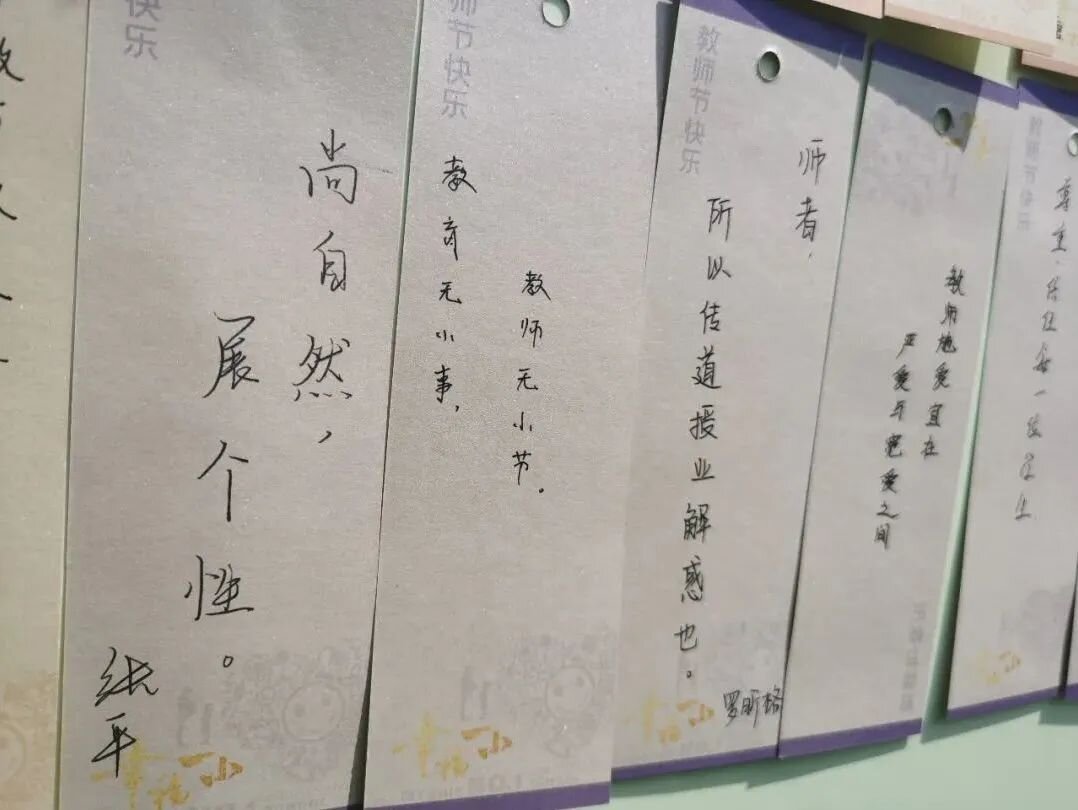 快乐
尚自然，
展个性。
平
幸福一小
师节快乐
教育无小事，
教师无小节。
幸福一小
教师节快乐
师者，
所以传道授业解惑也。
罗昕格
幸福一小
教师施爱宜在
严爱与宽爱之间
教师节快乐
尊重、信任每一位学生
一小